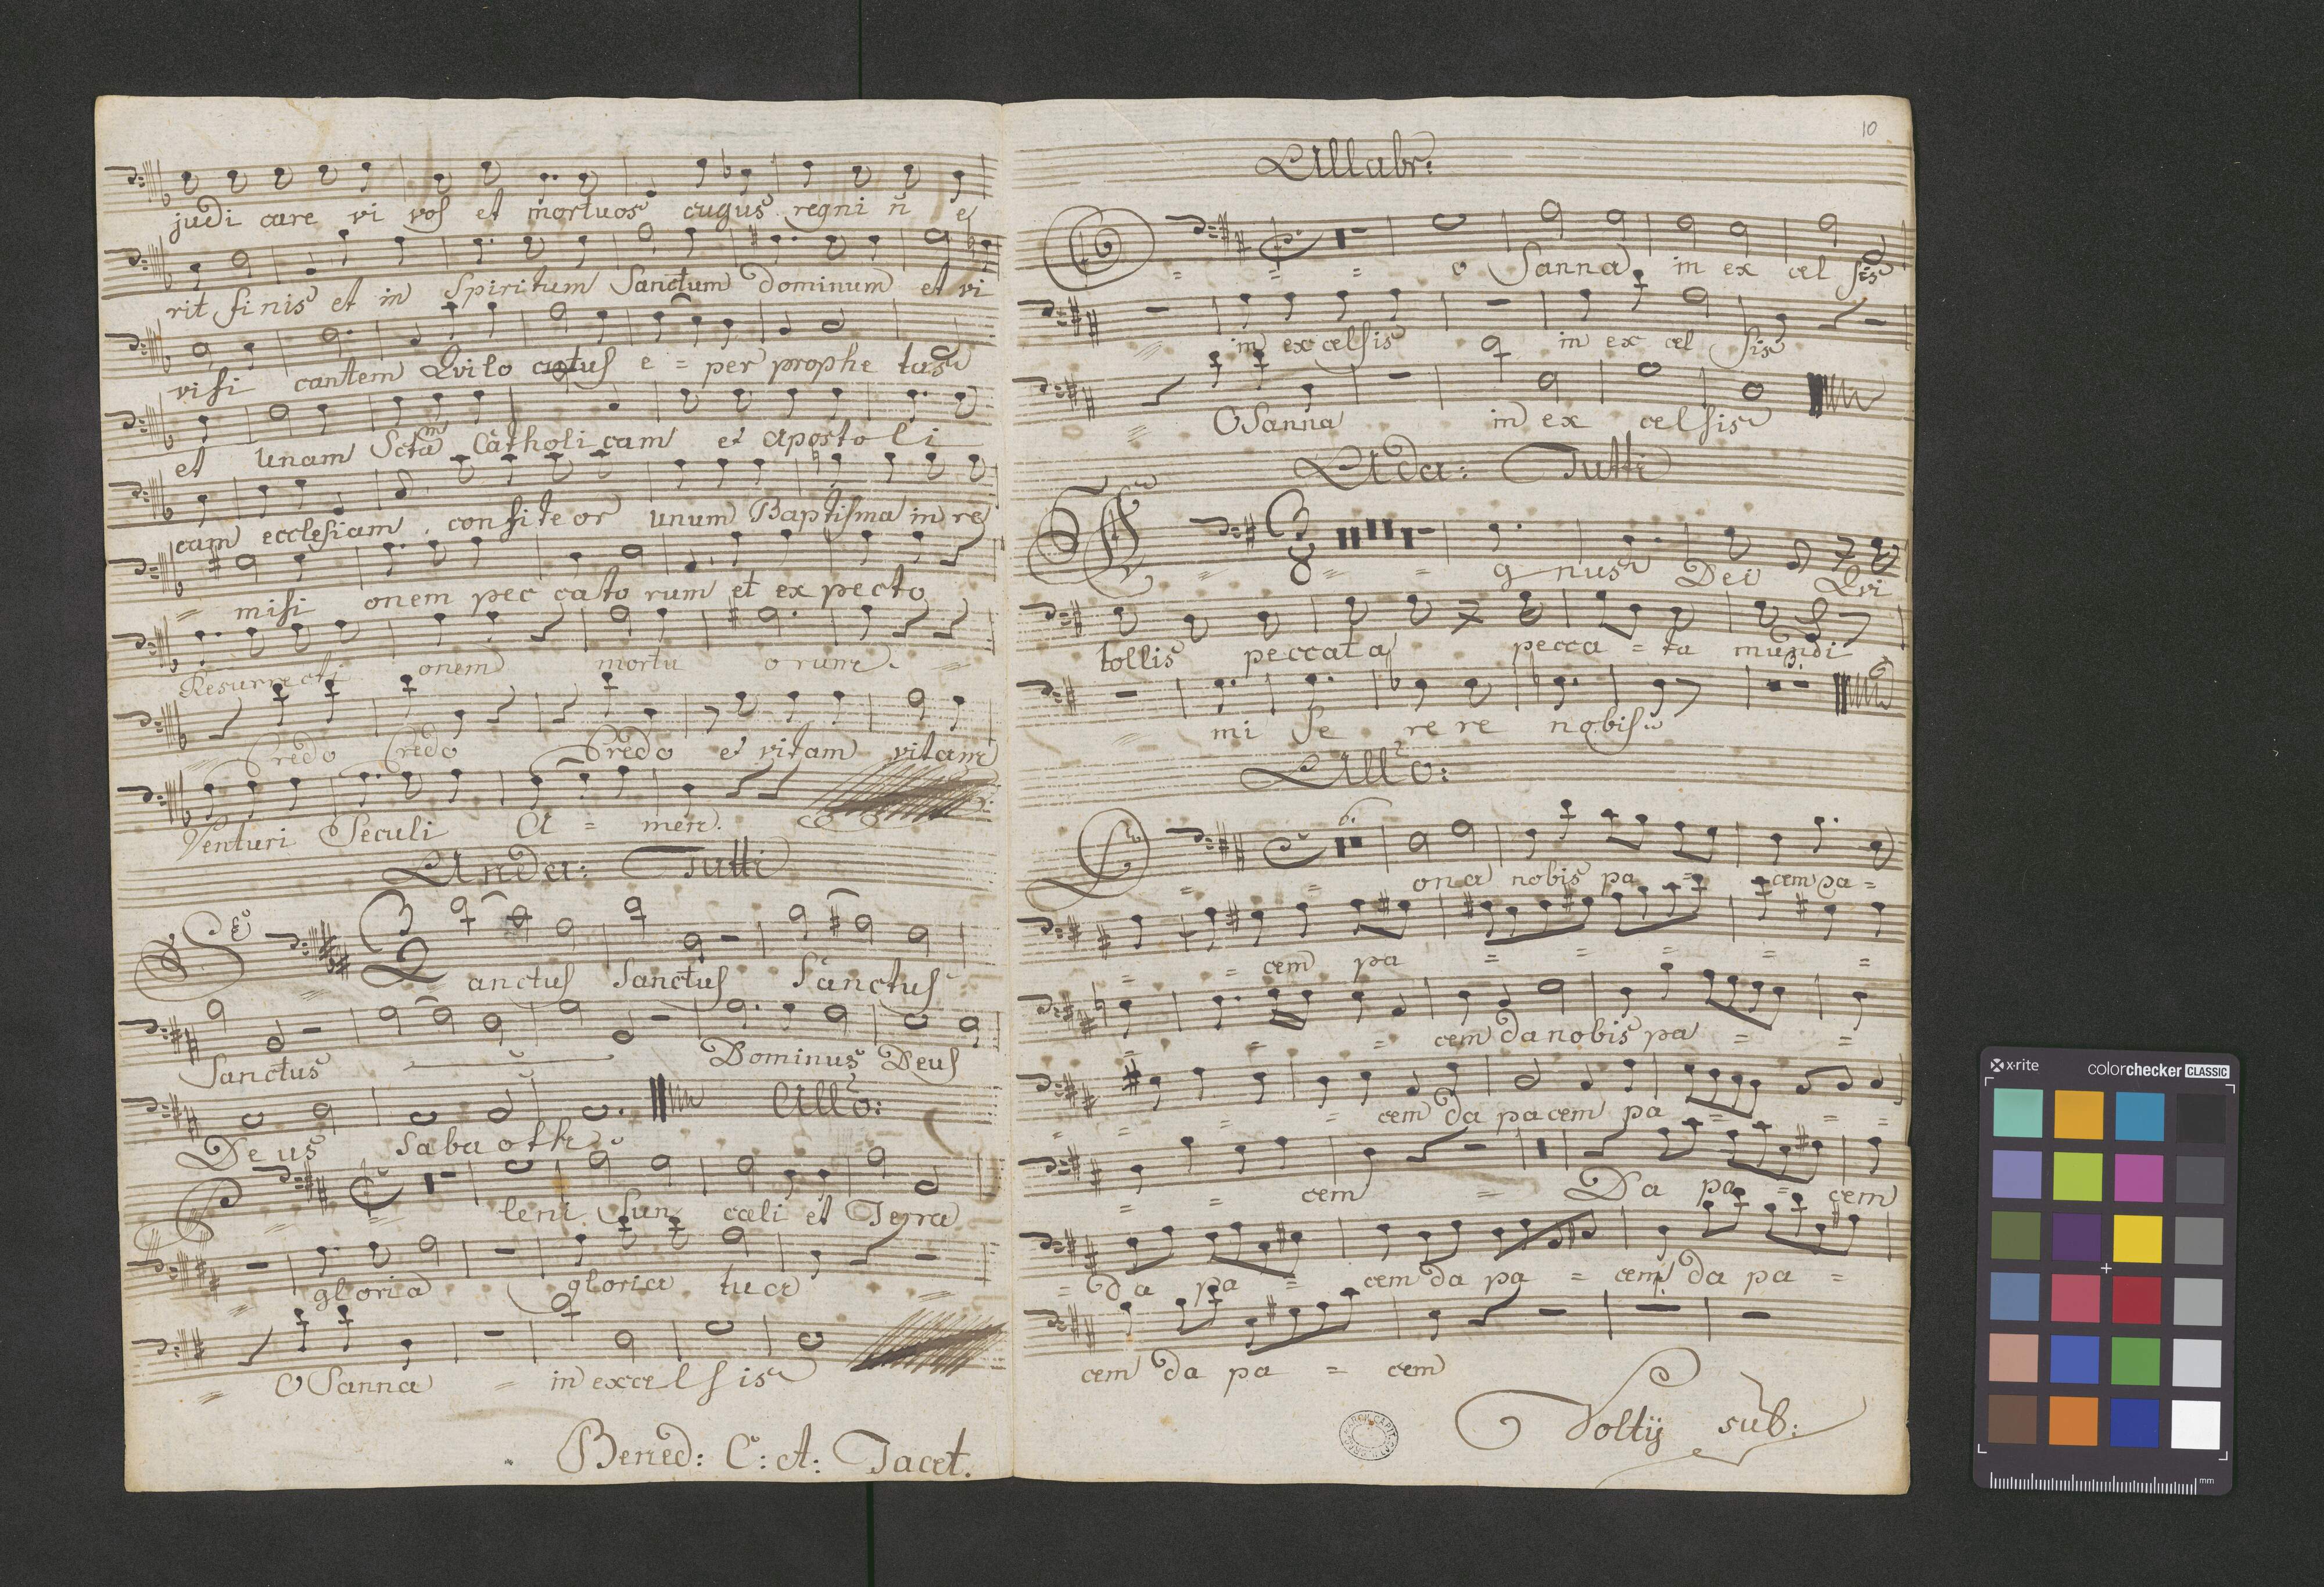 judi care vi vos et mortuos cugus regni n̄ e
rit finis et in Spiritum Sanctum Dominum et vi
vifi canttem Qui lo cutus e = per prophe tas
et Unam Sctam Catholi cam et aposto li
cam ecclesiam confiteor unum Baptisma in re
= misi onem pec cato rum et ex pecto
Resurrecti onem mortu orum. =
Credo Credo Credo et vitam vitam
Venturi Seculi A = men.
Anda: Tutti
Sanctus Sanctus Sanctus
Sanctus Dominus Deus
Allo:
Deus Saba oth
Pleni Sun cœli et Terra
gloria gloria tua
O Sanna = in excelsis
Bened: C: A: Tacet.
10
Allabr:
O = = = o Sanna in ex cel sis
in excelsis in ex cel sis
O Sanna in ex celsis
Ada: Tutti
A 3 8 = = = gnus Dei Qui
tollis peccata pecca = ta mundi
3.
mi se re re nobis
Allo:
6.
D = = ona nobis pa = cem pa =
= = cem pa = = = =
= = = cem da nobis pa = =
= = = cem da pacem pa = = =
= = cem = Da pa = cem
= da pa = cem da pa = cem da pa =
cem da pa = cem
Voltij sub:
x-rite colorchecker CLASSIC
mm